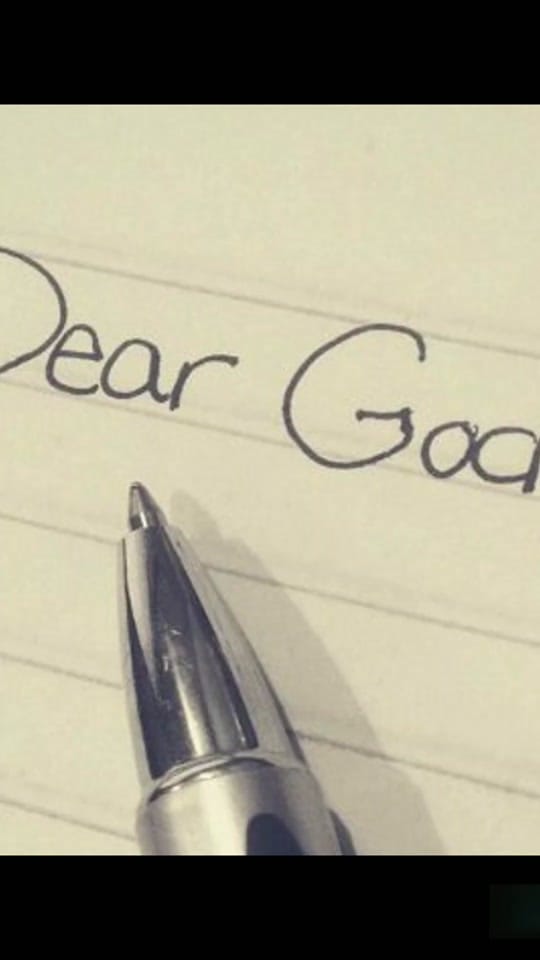 Dear God